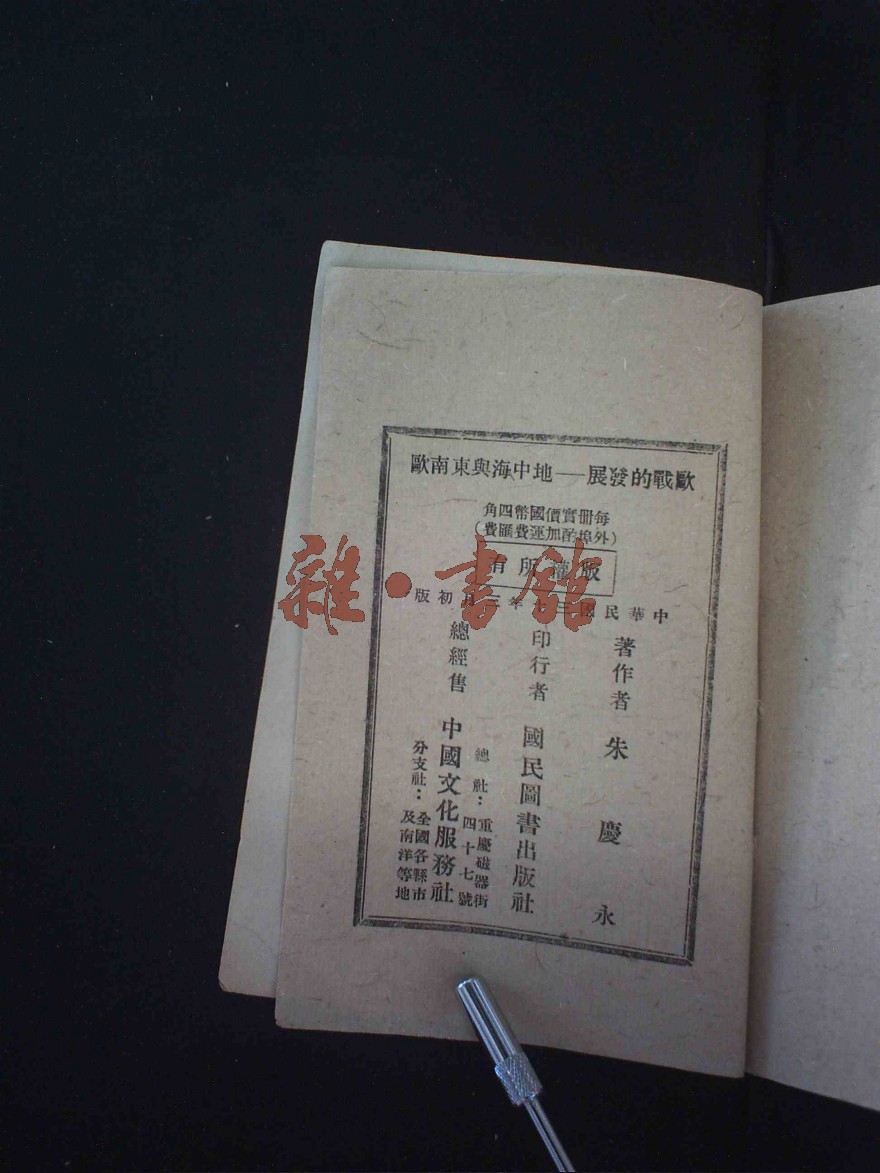 歐戰的發展——地中海與東南歐
每冊實價國幣四角
(外埠酌加運費匯費)
版權所有
中華民國三十年三月初版
著作者 朱慶永
印行者 國民圖書出版社
總經售 中國文化服務社
總社：重慶磁器街四十七號
分支社：全國各縣市及南洋等地
雜·書館